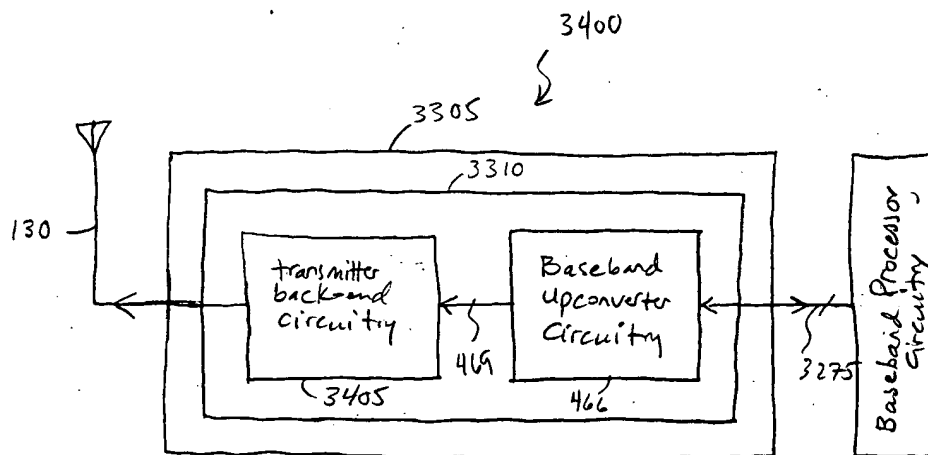 3400
3305
3310
130
transmitter
back-end
circuitry
Baseband
upconverter
Circuitry
469
3405
466
3275
Baseband Processor
Circuitry